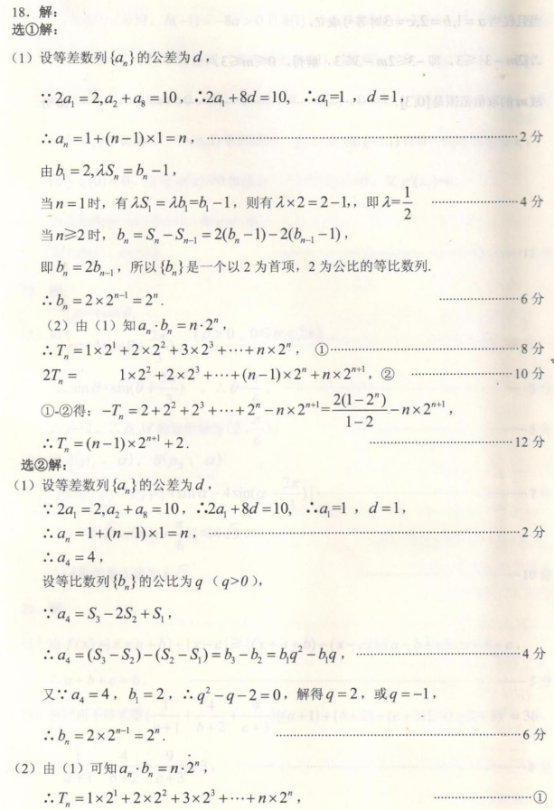 18．解：
选①解：
（1）设等差数列{aₙ}的公差为d，
∵2a₁=2,a₂+a₈=10，∴2a₁+8d=10，∴a₁=1，d=1，
∴aₙ=1+(n−1)×1=n，……2分
由b₁=2,λSₙ=bₙ−1，
当n=1时，有λS₁=λb₁=b₁−1，则有λ×2=2−1,，即λ=1/2 ……4分
当n≥2时，bₙ=Sₙ−Sₙ₋₁=2(bₙ−1)−2(bₙ₋₁−1)，
即bₙ=2bₙ₋₁，所以{bₙ}是一个以2为首项，2为公比的等比数列.
∴bₙ=2×2ⁿ⁻¹=2ⁿ. ……6分
（2）由（1）知aₙ·bₙ=n·2ⁿ，
∴Tₙ=1×2¹+2×2²+3×2³+⋯+n×2ⁿ，①……8分
2Tₙ= 1×2²+2×2³+⋯+(n−1)×2ⁿ+n×2ⁿ⁺¹，② ……10分
①-②得：−Tₙ=2+2²+2³+⋯+2ⁿ−n×2ⁿ⁺¹=2(1−2ⁿ)/(1−2)−n×2ⁿ⁺¹，
∴Tₙ=(n−1)×2ⁿ⁺¹+2. ……12分
选②解：
（1）设等差数列{aₙ}的公差为d，
∵2a₁=2,a₂+a₈=10，∴2a₁+8d=10，∴a₁=1，d=1，
∴aₙ=1+(n−1)×1=n，……2分
∴a₄=4，
设等比数列{bₙ}的公比为q（q>0），
∵a₄=S₃−2S₂+S₁，
∴a₄=(S₃−S₂)−(S₂−S₁)=b₃−b₂=b₁q²−b₁q，……4分
又∵a₄=4，b₁=2，∴q²−q−2=0，解得q=2，或q=−1，
∴bₙ=2×2ⁿ⁻¹=2ⁿ ……6分
（2）由（1）可知aₙ·bₙ=n·2ⁿ，
∴Tₙ=1×2¹+2×2²+3×2³+⋯+n×2ⁿ，……①